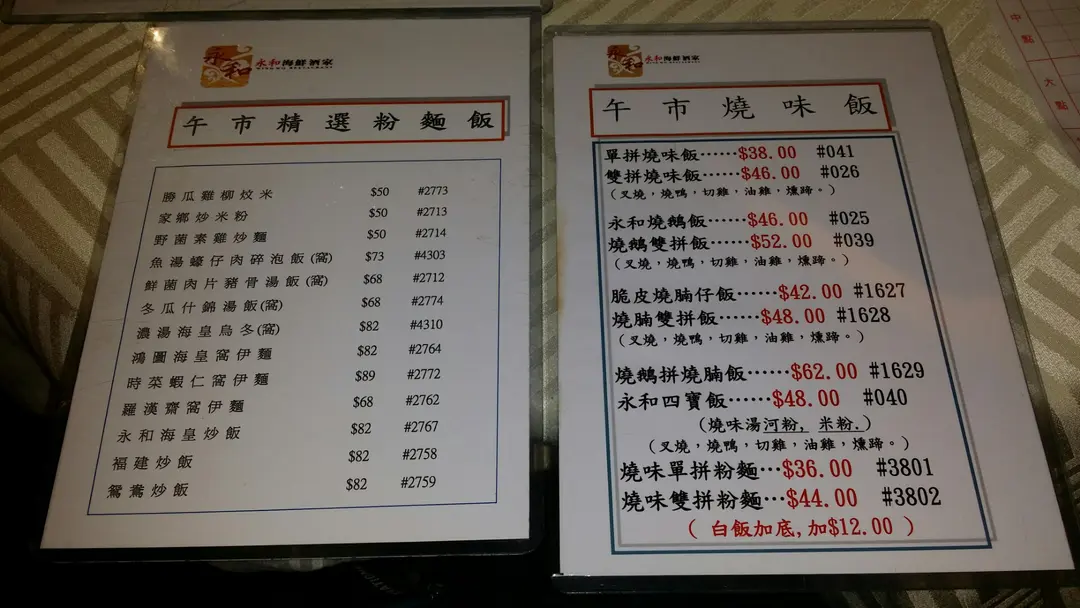 永和
永和海鮮酒家
午市精選粉麵飯
勝瓜雞柳炆米 $50 #2773
家鄉炒米粉 $50 #2713
野菌素雞炒麵 $50 #2714
魚湯蠔仔肉碎泡飯(窩) $73 #4303
鮮菌肉片豬骨湯飯(窩) $68 #2712
冬瓜什錦湯飯(窩) $68 #2774
濃湯海皇烏冬(窩) $82 #4310
鴻圖海皇窩伊麵 $82 #2764
時菜蝦仁窩伊麵 $89 #2772
羅漢齋窩伊麵 $68 #2762
永和海皇炒飯 $82 #2767
福建炒飯 $82 #2758
鴛鴦炒飯 $82 #2759
永和
永和海鮮酒家
午市燒味飯
單拼燒味飯⋯⋯$38.00 #041
雙拼燒味飯⋯⋯$46.00 #026
(叉燒,燒鴨,切雞,油雞,燻蹄。)
永和燒鵝飯⋯⋯$46.00 #025
燒鵝雙拼飯⋯⋯$52.00 #039
(叉燒,燒鴨,切雞,油雞,燻蹄。)
脆皮燒腩仔飯⋯⋯$42.00 #1627
燒腩雙拼飯⋯⋯$48.00 #1628
(叉燒,燒鴨,切雞,油雞,燻蹄。)
燒鵝拼燒腩飯⋯⋯$62.00 #1629
永和四寶飯⋯⋯$48.00 #040
(燒味湯河粉, 米粉.)
(叉燒,燒鴨,切雞,油雞,燻蹄。)
燒味單拼粉麵⋯$36.00 #3801
燒味雙拼粉麵⋯$44.00 #3802
( 白飯加底,加$12.00 )
中點
大點